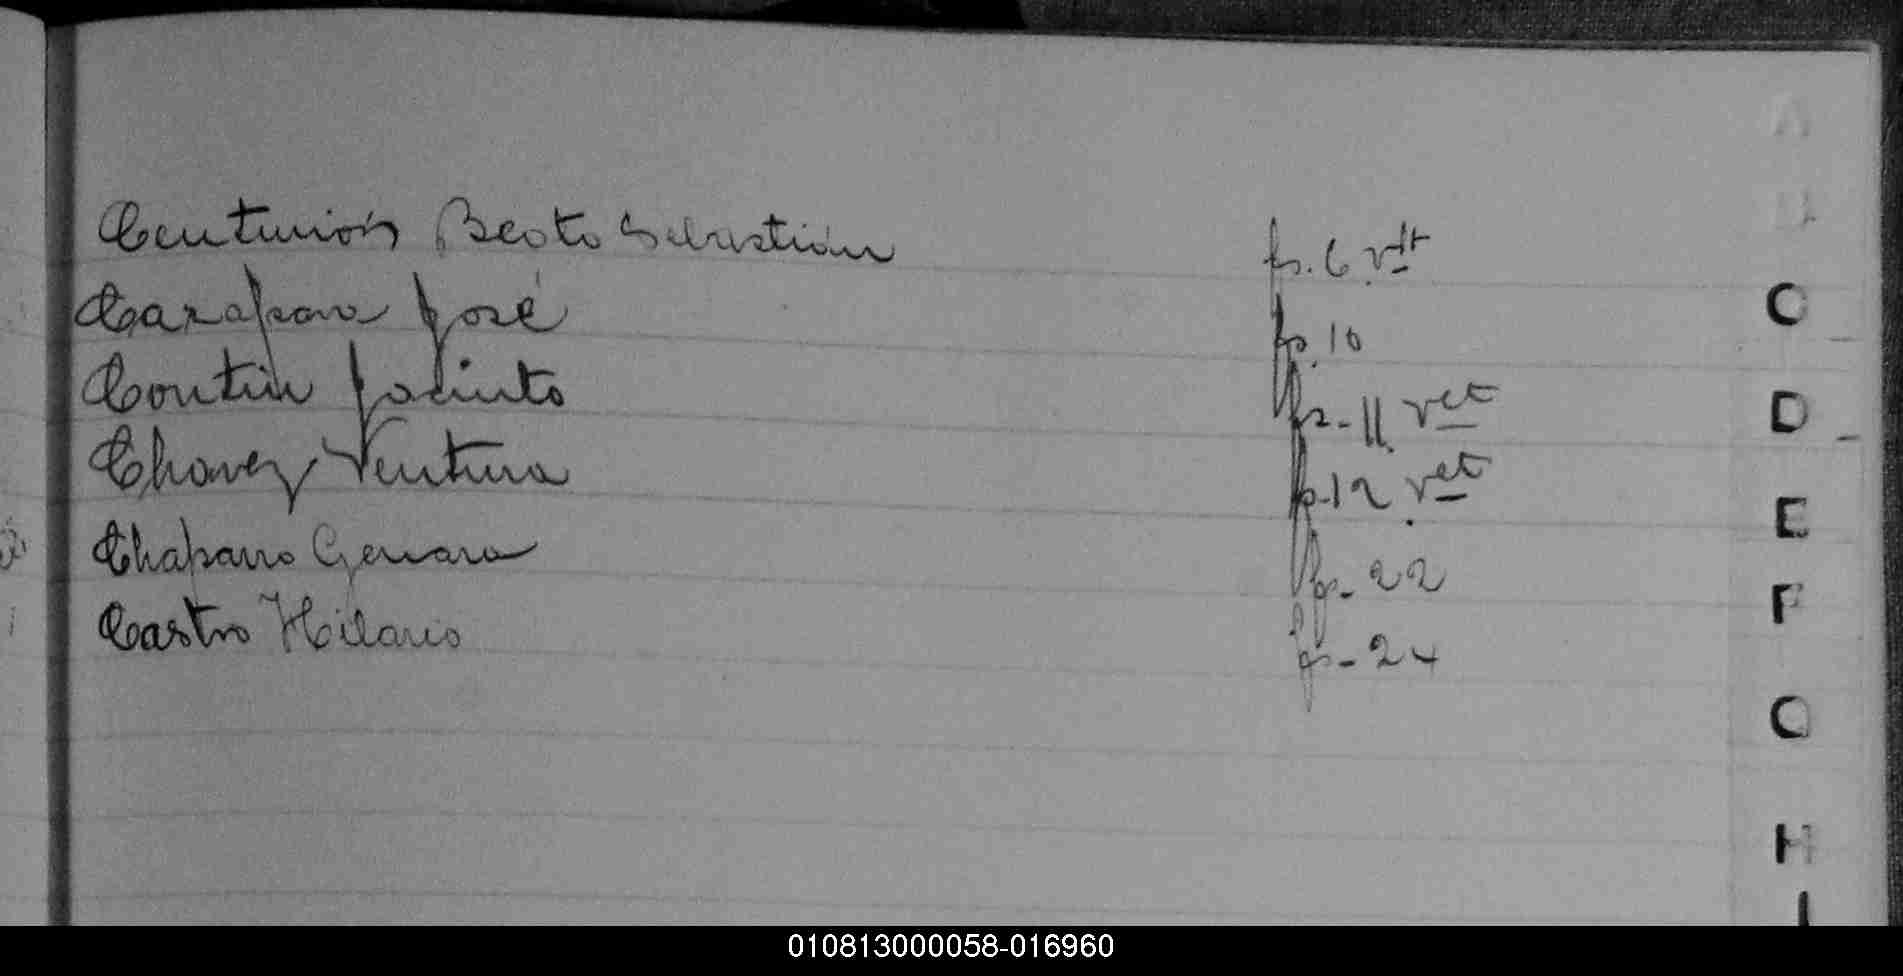 Centurión Beato Sebastián fs. 6 vlt
Cazapava José fs. 10
Contin Jacinto fs - 11 vet
Chavez Ventura fs. 12 vet
Chaparro Genaro fs - 22
Castro Hilario fs - 24
A
B
C
D
E
F
G
H
I
010813000058-016960